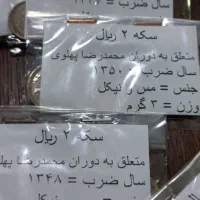 سال ضرب = ۱۳
سکه ۲ ریال
متعلق به دوران محمدرضا پهلوی
سال ضرب = ۱۳۵۰
جنس = مس و نیکل
وزن = ۳ گرم
سکه ۲ ریال
متعلق به دوران محمدرضا
سال ضرب = ۱۳۴۸